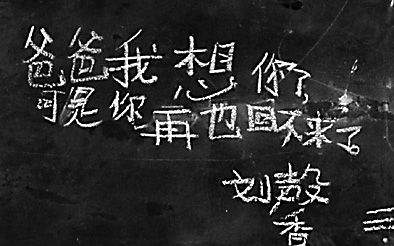 爸爸我想你了
可是你再也回不来了
刘声
香